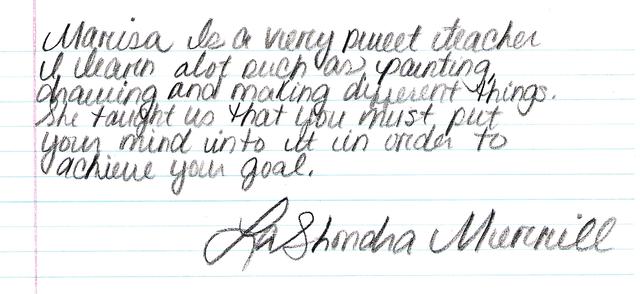 Marisa Is a very sweet teacher
I learn alot such as painting,
drawing and making different things.
She taught us that you must put
your mind into it in order to
achieve your goal.
LaShondra Murrill